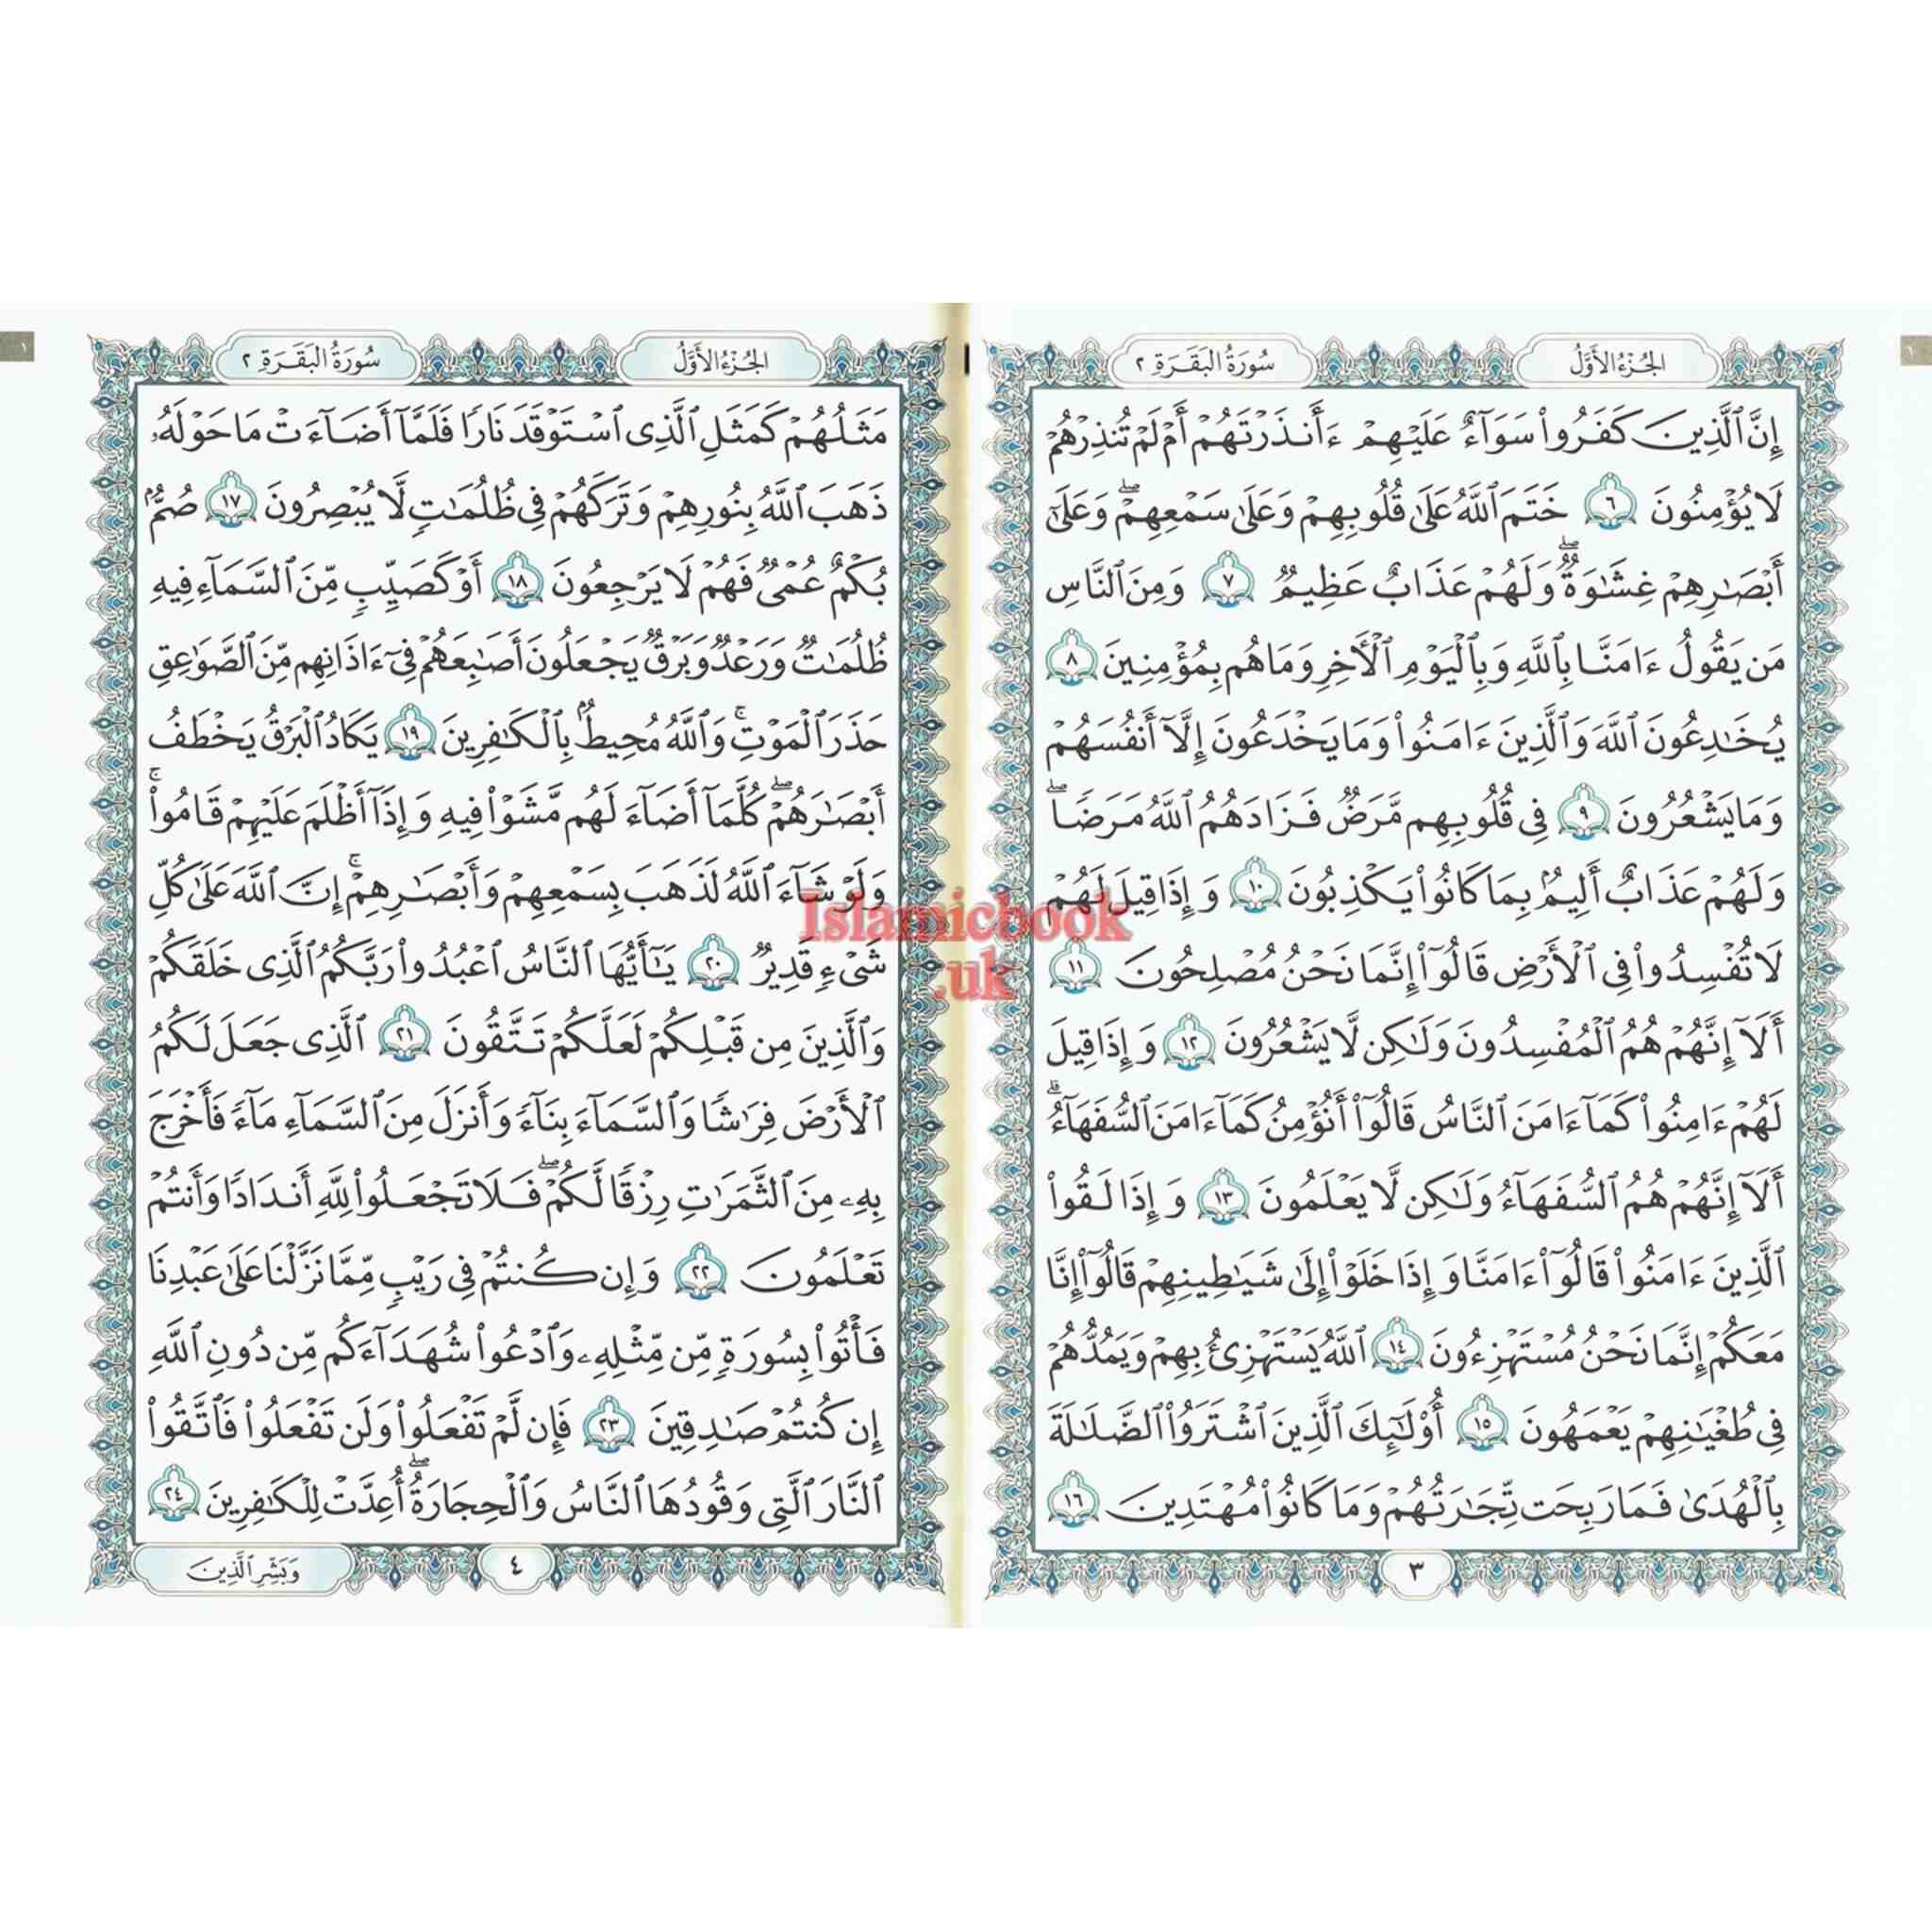 الجُزْءُ الأَوَّلُ
سُورَةُ البَقَرَةِ ٢
إِنَّ ٱلَّذِينَ كَفَرُوا۟ سَوَآءٌ عَلَيْهِمْ ءَأَنذَرْتَهُمْ أَمْ لَمْ تُنذِرْهُمْ
لَا يُؤْمِنُونَ ٦ خَتَمَ ٱللَّهُ عَلَىٰ قُلُوبِهِمْ وَعَلَىٰ سَمْعِهِمْ ۖ وَعَلَىٰٓ
أَبْصَٰرِهِمْ غِشَٰوَةٌ ۖ وَلَهُمْ عَذَابٌ عَظِيمٌ ٧ وَمِنَ ٱلنَّاسِ
مَن يَقُولُ ءَامَنَّا بِٱللَّهِ وَبِٱلْيَوْمِ ٱلْأَخِرِ وَمَا هُم بِمُؤْمِنِينَ ٨
يُخَٰدِعُونَ ٱللَّهَ وَٱلَّذِينَ ءَامَنُوا۟ وَمَا يَخْدَعُونَ إِلَّآ أَنفُسَهُمْ
وَمَا يَشْعُرُونَ ٩ فِى قُلُوبِهِم مَّرَضٌ فَزَادَهُمُ ٱللَّهُ مَرَضًا ۖ
وَلَهُمْ عَذَابٌ أَلِيمٌۢ بِمَا كَانُوا۟ يَكْذِبُونَ ١٠ وَإِذَا قِيلَ لَهُمْ
لَا تُفْسِدُوا۟ فِى ٱلْأَرْضِ قَالُوٓا۟ إِنَّمَا نَحْنُ مُصْلِحُونَ ١١
أَلَآ إِنَّهُمْ هُمُ ٱلْمُفْسِدُونَ وَلَٰكِن لَّا يَشْعُرُونَ ١٢ وَإِذَا قِيلَ
لَهُمْ ءَامِنُوا۟ كَمَآ ءَامَنَ ٱلنَّاسُ قَالُوٓا۟ أَنُؤْمِنُ كَمَآ ءَامَنَ ٱلسُّفَهَآءُ ۗ
أَلَآ إِنَّهُمْ هُمُ ٱلسُّفَهَآءُ وَلَٰكِن لَّا يَعْلَمُونَ ١٣ وَإِذَا لَقُوا۟
ٱلَّذِينَ ءَامَنُوا۟ قَالُوٓا۟ ءَامَنَّا وَإِذَا خَلَوْا۟ إِلَىٰ شَيَٰطِينِهِمْ قَالُوٓا۟ إِنَّا
مَعَكُمْ إِنَّمَا نَحْنُ مُسْتَهْزِءُونَ ١٤ ٱللَّهُ يَسْتَهْزِئُ بِهِمْ وَيَمُدُّهُمْ
فِى طُغْيَٰنِهِمْ يَعْمَهُونَ ١٥ أُو۟لَٰٓئِكَ ٱلَّذِينَ ٱشْتَرَوُا۟ ٱلضَّلَٰلَةَ
بِٱلْهُدَىٰ فَمَا رَبِحَت تِّجَٰرَتُهُمْ وَمَا كَانُوا۟ مُهْتَدِينَ ١٦
٣
الجُزْءُ الأَوَّلُ
سُورَةُ البَقَرَةِ ٢
مَثَلُهُمْ كَمَثَلِ ٱلَّذِى ٱسْتَوْقَدَ نَارًا فَلَمَّآ أَضَآءَتْ مَا حَوْلَهُۥ
ذَهَبَ ٱللَّهُ بِنُورِهِمْ وَتَرَكَهُمْ فِى ظُلُمَٰتٍ لَّا يُبْصِرُونَ ١٧ صُمٌّۢ
بُكْمٌ عُمْىٌ فَهُمْ لَا يَرْجِعُونَ ١٨ أَوْ كَصَيِّبٍ مِّنَ ٱلسَّمَآءِ فِيهِ
ظُلُمَٰتٌ وَرَعْدٌ وَبَرْقٌ يَجْعَلُونَ أَصَٰبِعَهُمْ فِىٓ ءَاذَانِهِم مِّنَ ٱلصَّوَٰعِقِ
حَذَرَ ٱلْمَوْتِ ۚ وَٱللَّهُ مُحِيطٌۢ بِٱلْكَٰفِرِينَ ١٩ يَكَادُ ٱلْبَرْقُ يَخْطَفُ
أَبْصَٰرَهُمْ ۖ كُلَّمَآ أَضَآءَ لَهُم مَّشَوْا۟ فِيهِ وَإِذَآ أَظْلَمَ عَلَيْهِمْ قَامُوا۟ ۚ
وَلَوْ شَآءَ ٱللَّهُ لَذَهَبَ بِسَمْعِهِمْ وَأَبْصَٰرِهِمْ ۚ إِنَّ ٱللَّهَ عَلَىٰ كُلِّ
شَىْءٍ قَدِيرٌ ٢٠ يَٰٓأَيُّهَا ٱلنَّاسُ ٱعْبُدُوا۟ رَبَّكُمُ ٱلَّذِى خَلَقَكُمْ
وَٱلَّذِينَ مِن قَبْلِكُمْ لَعَلَّكُمْ تَتَّقُونَ ٢١ ٱلَّذِى جَعَلَ لَكُمُ
ٱلْأَرْضَ فِرَٰشًا وَٱلسَّمَآءَ بِنَآءً وَأَنزَلَ مِنَ ٱلسَّمَآءِ مَآءً فَأَخْرَجَ
بِهِۦ مِنَ ٱلثَّمَرَٰتِ رِزْقًا لَّكُمْ ۖ فَلَا تَجْعَلُوا۟ لِلَّهِ أَندَادًا وَأَنتُمْ
تَعْلَمُونَ ٢٢ وَإِن كُنتُمْ فِى رَيْبٍ مِّمَّا نَزَّلْنَا عَلَىٰ عَبْدِنَا
فَأْتُوا۟ بِسُورَةٍ مِّن مِّثْلِهِۦ وَٱدْعُوا۟ شُهَدَآءَكُم مِّن دُونِ ٱللَّهِ
إِن كُنتُمْ صَٰدِقِينَ ٢٣ فَإِن لَّمْ تَفْعَلُوا۟ وَلَن تَفْعَلُوا۟ فَٱتَّقُوا۟
ٱلنَّارَ ٱلَّتِى وَقُودُهَا ٱلنَّاسُ وَٱلْحِجَارَةُ ۖ أُعِدَّتْ لِلْكَٰفِرِينَ ٢٤
٤
وَبَشِّرِ ٱلَّذِينَ
١
١
Islamicbook
.uk